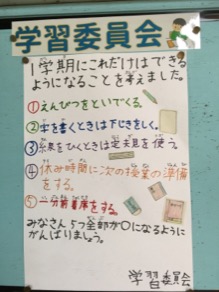 学習委員会
1学期にこれだけはできる
ようになることを考えました。
①えんぴつをといでくる。
②字を書くときは下じきをしく。
③線をひくときは定規を使う。
④休み時間に次の授業の準備
をする。
⑤一分前着席をする。
みなさん5つ全部が○になるように
がんばりましょう。
学習委員会